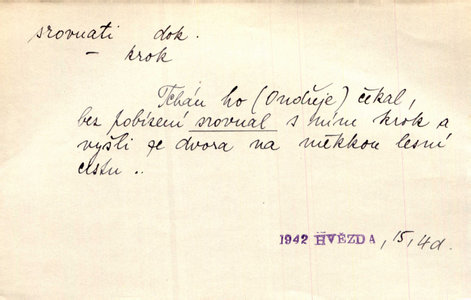 srovnati dok.
– krok
Tchán ho (Ondřeje) čekal,
bez pobízení srovnal s ním krok a
vyšli ze dvora na měkkou lesní
cestu ..
1942 HVĚZDA, 15, 4d.